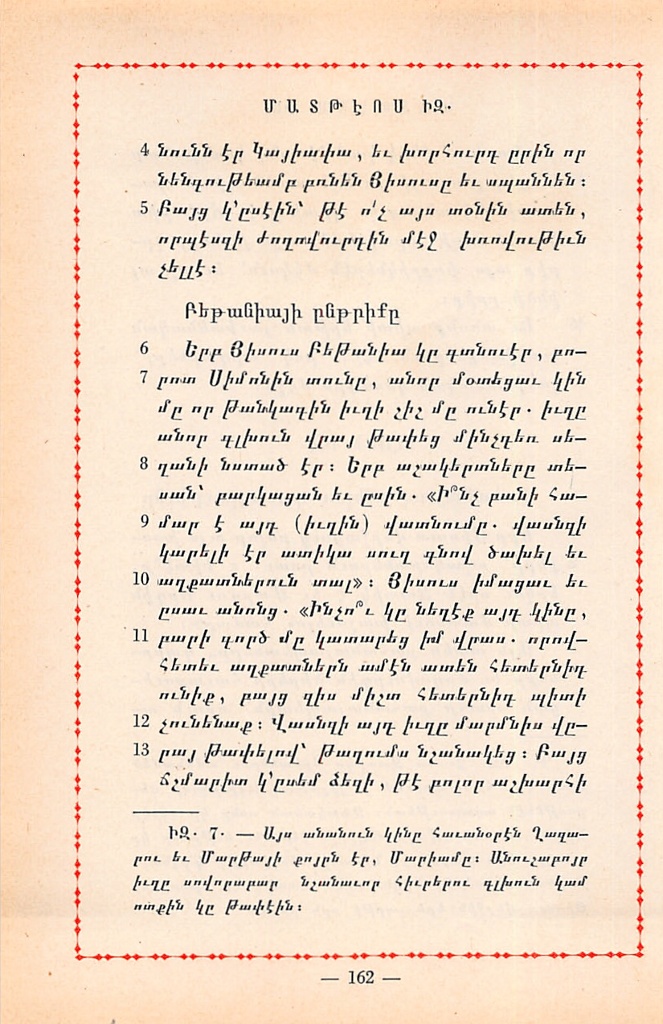 ՄԱՏԹԷՈՍ ԻԶ.
4 նունն էր Կայիափա, եւ խորհուրդ ըրին որ
նենգութեամբ բռնեն Յիսուսը եւ սպաննեն :
5 Բայց կ՚ըսէին՝ թէ ո՛չ այս տօնին ատեն,
որպէսզի ժողովուրդին մէջ խռովութիւն
չելլէ :
Բեթանիայի ընթրիքը
6 Երբ Յիսուս Բեթանիա կը գտնուէր, բո–
7 րոտ Սիմոնին տունը, անոր մօտեցաւ կին
մը որ թանկագին իւղի շիշ մը ունէր. իւղը
անոր գլխուն վրայ թափեց մինչդեռ սե–
8 ղանի նստած էր : Երբ աշակերտները տե–
սան՝ բարկացան եւ ըսին. «Ի՞նչ բանի հա–
9 մար է այդ (իւղին) վատնումը. վասնզի
կարելի էր ատիկա սուղ գնով ծախել եւ
10 աղքատներուն տալ» : Յիսուս իմացաւ եւ
ըսաւ անոնց. «Ինչո՞ւ կը նեղէք այդ կինը,
11 բարի գործ մը կատարեց իմ վրաս. որով–
հետեւ աղքատներն ամէն ատեն հետերնիդ
ունիք, բայց զիս միշտ հետերնիդ պիտի
12 չունենաք : Վասնզի այդ իւղը մարմնիս վը–
13 րայ թափելով՝ թաղումս նշանակեց : Բայց
ճշմարիտ կ՚ըսեմ ձեզի, թէ բոլոր աշխարհի
ԻԶ. 7. — Այս անանուն կինը հաւանօրէն Ղազա–
րու եւ Մարթայի քոյրն էր, Մարիամը : Անուշաբոյր
իւղը սովորաբար նշանաւոր հիւրերու գլխուն կամ
ոտքին կը թափէին :
— 162 —